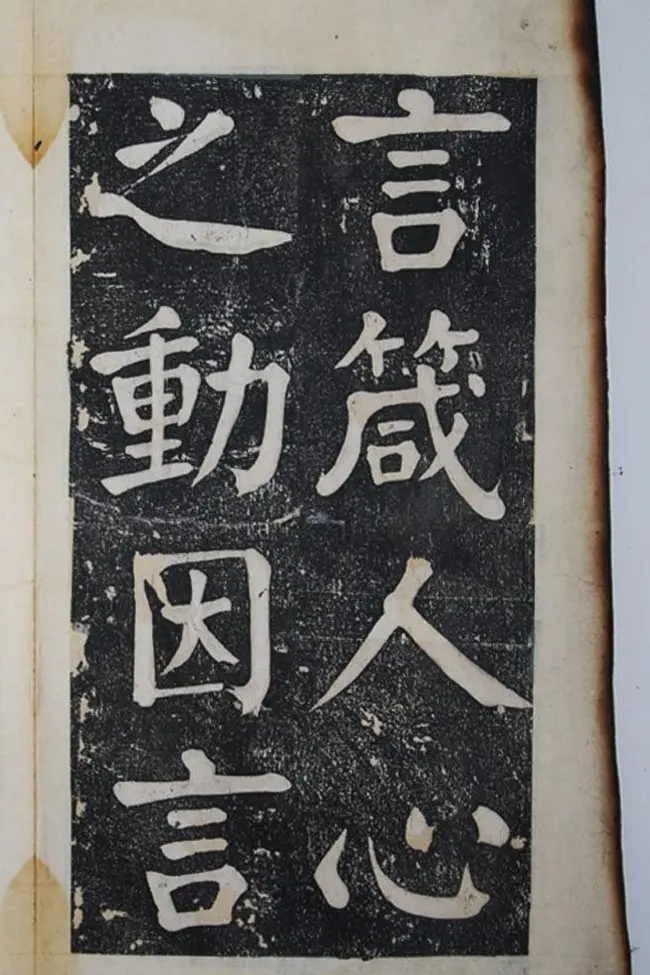 言箴人心
之動因言